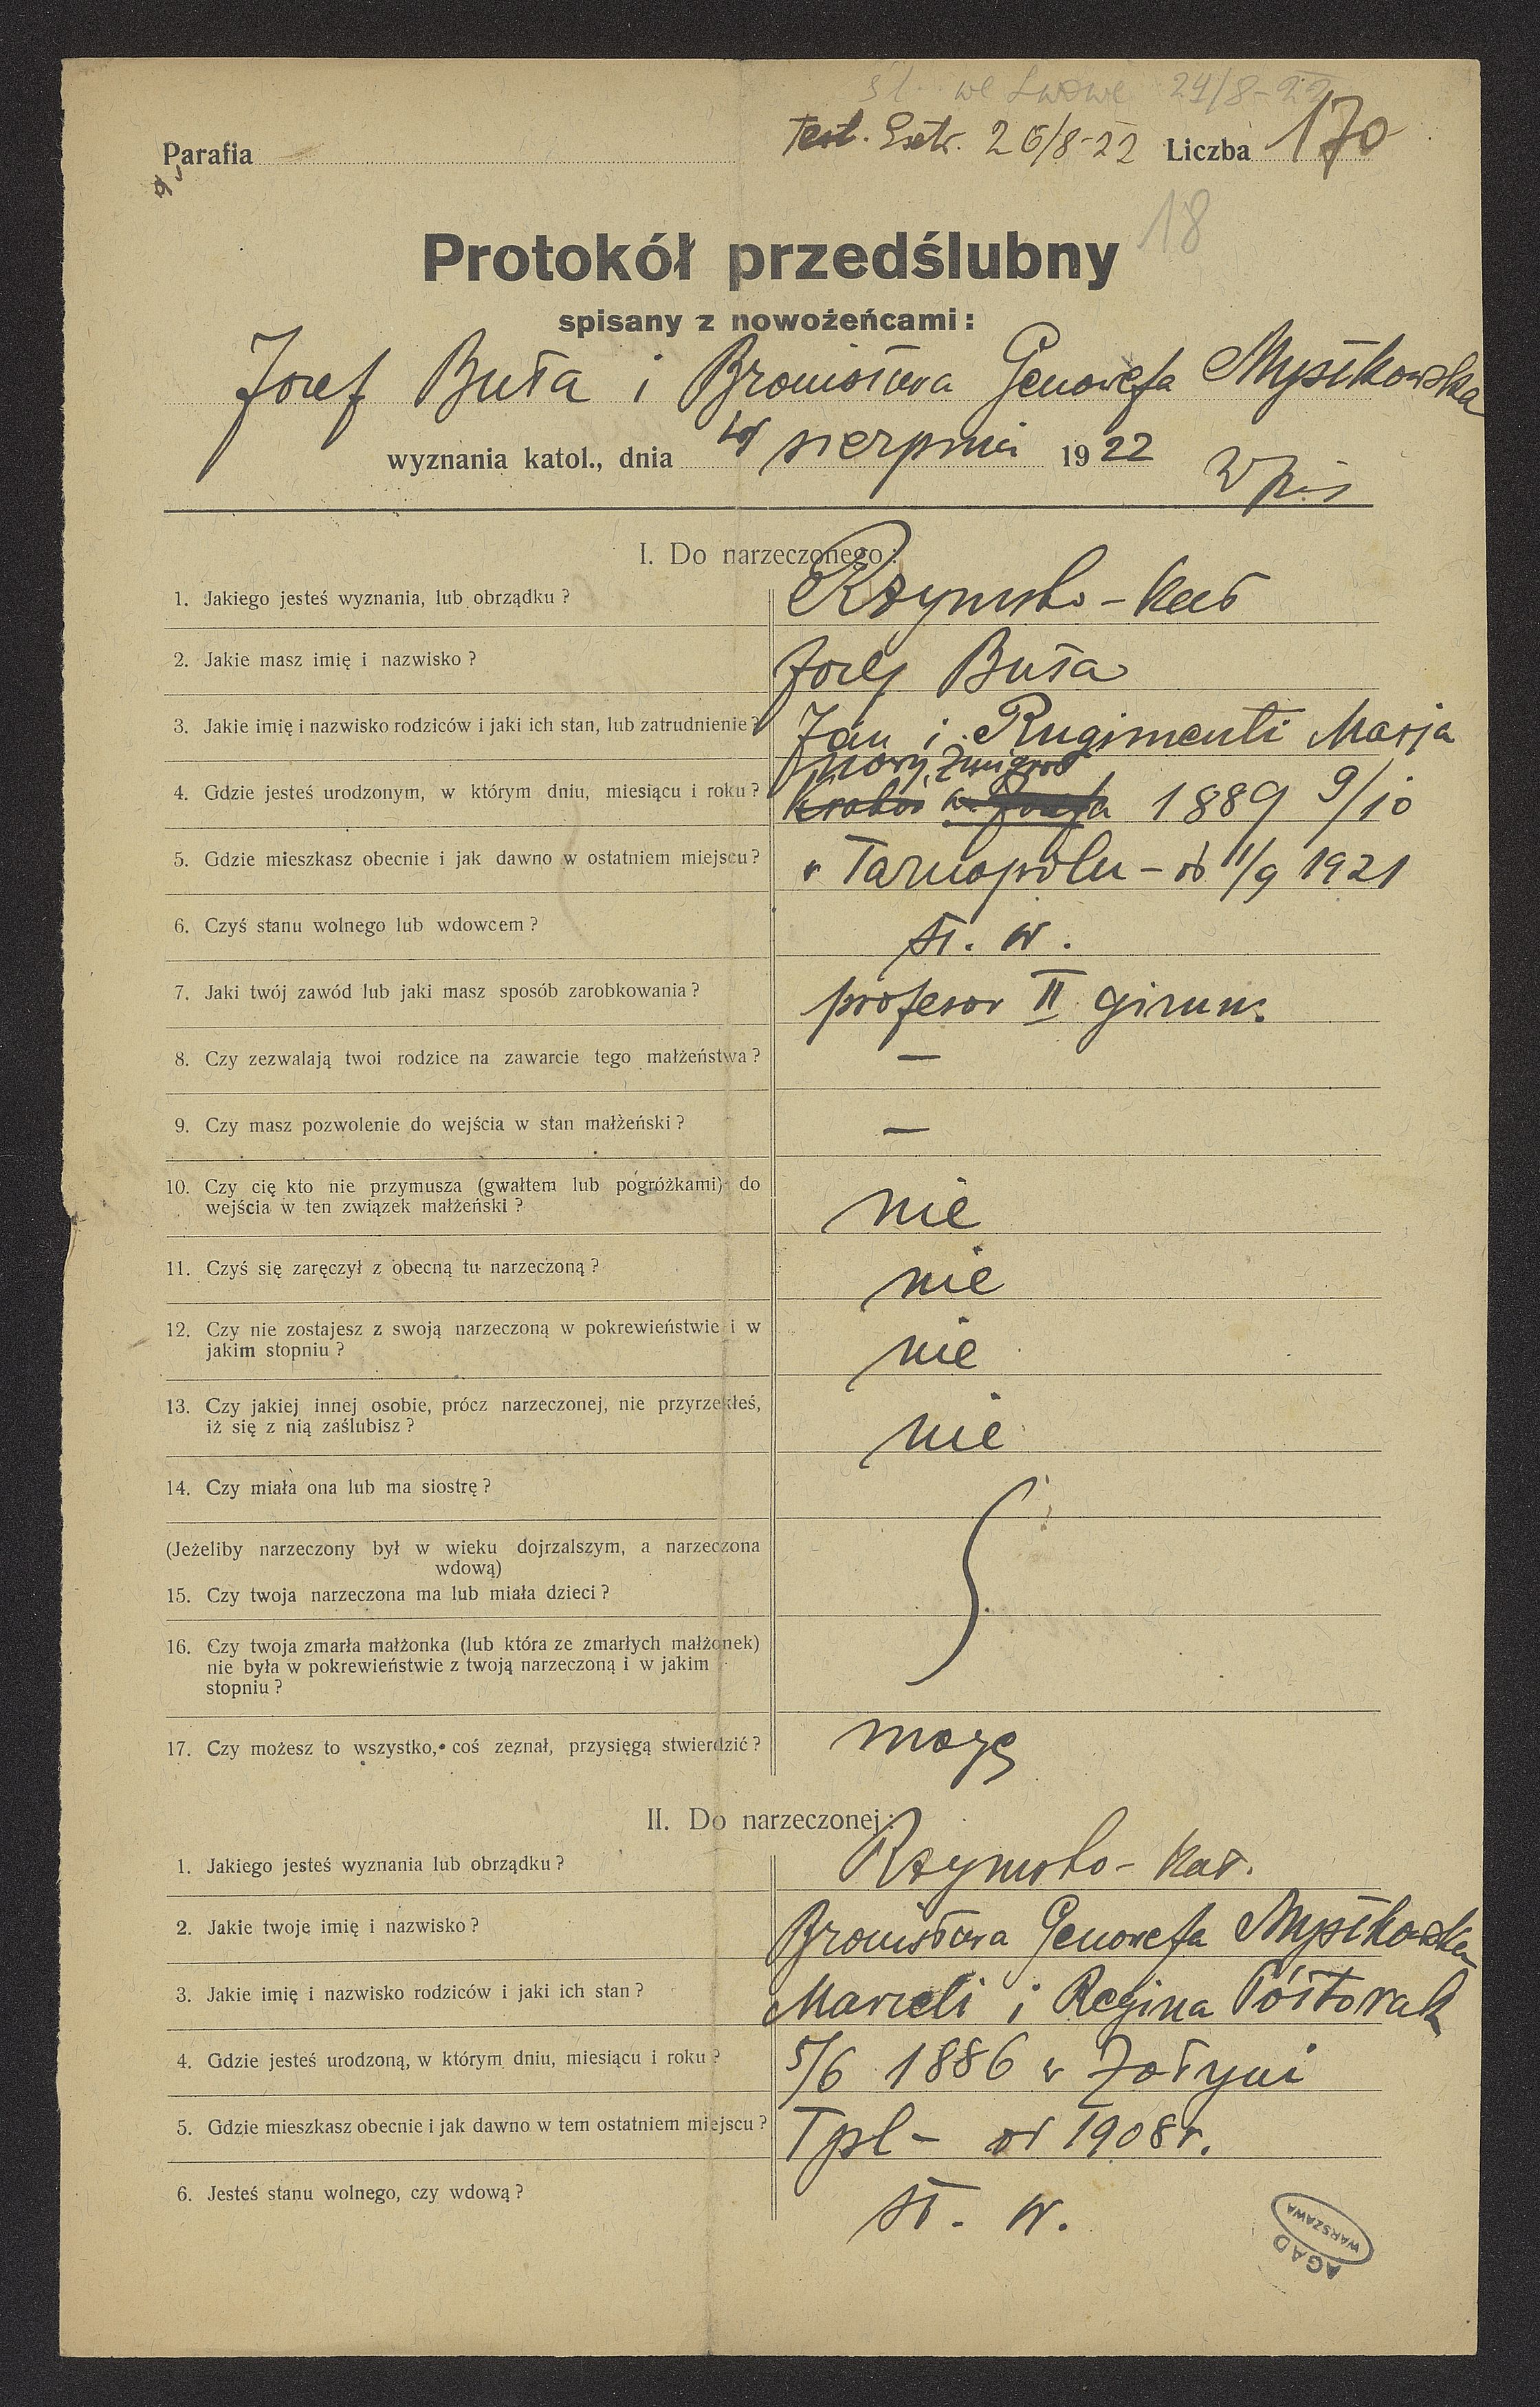 śl. we Lwowie 24/8-22
Test. Extr. 26/8-22 Liczba 170
Parafia
18
Protokół przedślubny
spisany z nowożeńcami:
Józef Buła i Bronisława Genowefa Mysłkowska
wyznania katol., dnia sierpnia 1922
Wpis
I. Do narzeczonego:
1. Jakiego jesteś wyznania, lub obrządku? Rzymsko-kat
2. Jakie masz imię i nazwisko? Józef Buła
3. Jakie imię i nazwisko rodziców i jaki ich stan, lub zatrudnienie? Jan i Rugimenti Marja
Nowy Żmigród
4. Gdzie jesteś urodzonym, w którym dniu, miesiącu i roku? 1889 9/10
5. Gdzie mieszkasz obecnie i jak dawno w ostatniem miejscu? w Tarnopolu - od 11/9 1921
6. Czyś stanu wolnego lub wdowcem? st. w.
7. Jaki twój zawód lub jaki masz sposób zarobkowania? profesor II gimn.
8. Czy zezwalają twoi rodzice na zawarcie tego małżeństwa? —
9. Czy masz pozwolenie do wejścia w stan małżeński? —
10. Czy cię kto nie przymusza (gwałtem lub pogróżkami) do
wejścia w ten związek małżeński? nie
11. Czyś się zaręczył z obecną tu narzeczoną? nie
12. Czy nie zostajesz z swoją narzeczoną w pokrewieństwie i w
jakim stopniu? nie
13. Czy jakiej innej osobie, prócz narzeczonej, nie przyrzekłeś,
iż się z nią zaślubisz? nie
14. Czy miała ona lub ma siostrę?
(Jeżeliby narzeczony był w wieku dojrzalszym, a narzeczona
wdową)
15. Czy twoja narzeczona ma lub miała dzieci?
16. Czy twoja zmarła małżonka (lub która ze zmarłych małżonek)
nie była w pokrewieństwie z twoją narzeczoną i w jakim
stopniu?
17. Czy możesz to wszystko, coś zeznał, przysięgą stwierdzić? mogę
II. Do narzeczonej:
1. Jakiego jesteś wyznania lub obrządku? Rzymsko-kat.
2. Jakie twoje imię i nazwisko? Bronisława Genowefa Mysłkowska
3. Jakie imię i nazwisko rodziców i jaki ich stan? Marceli i Regina Półtorak
4. Gdzie jesteś urodzoną, w którym dniu, miesiącu i roku? 5/6 1886 w Żołyni
5. Gdzie mieszkasz obecnie i jak dawno w tem ostatniem miejscu? Tpl - od 1908 r.
6. Jesteś stanu wolnego, czy wdową? st. w.
AGAD
WARSZAWA